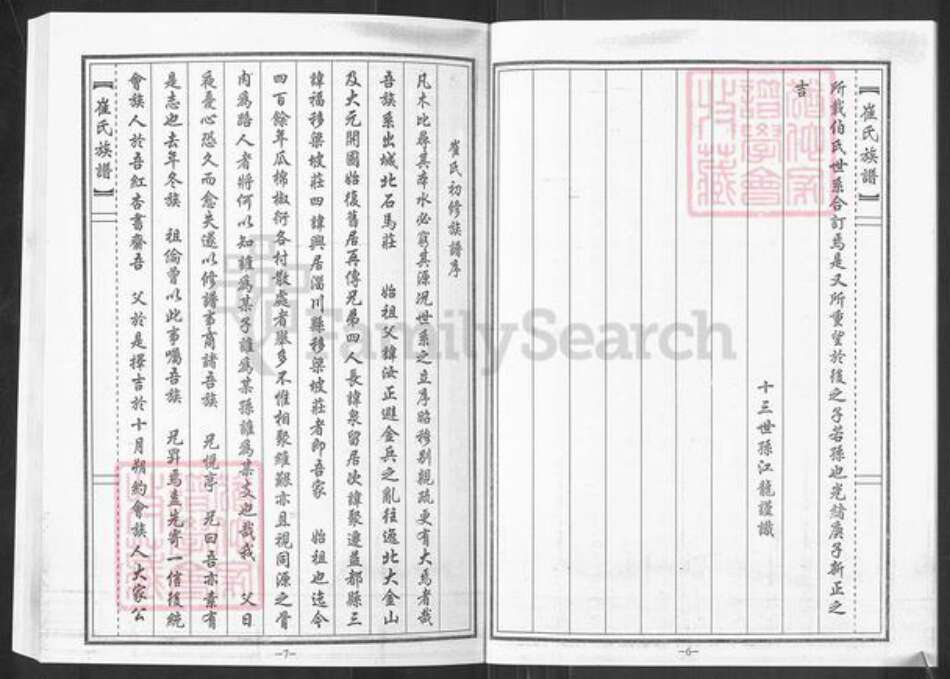 【崔氏族譜】
所載伯氏世系合訂焉是又所重望於後之子若孫也光緒庚子新正之
吉
十三世孫江龍謹識
-6-
崔氏初修族譜序
凡木必尋其本水必窮其源況世系之立序昭穆別親疏更有大焉者哉
吾族系出城北石馬莊 始祖父諱汝正避金兵之亂往遷北大金山
及大元開國始復舊居再傳兄弟四人長諱泉留居次諱聚遷益都縣三
諱福移梁坡莊四諱興居淄川縣移梁坡莊者即吾家 始祖也迄今
四百餘年瓜棉椒衍各村散處者興多不惟相聚維艱亦且視同源之骨
肉為路人者將何以知誰為某子誰為某孫誰為某支也哉我 父日
夜憂心恐久而愈失遂以修譜事商諸吾族 兄 亭 兄曰吾亦素有
是志也去年冬族 祖倫曾以此事囑吾族 兄昇焉盍先寄一信後統
會族人於吾紅杏書齋吾 父於是擇吉於十月朔約會族人大家公
【崔氏族譜】
-7-
FamilySearch